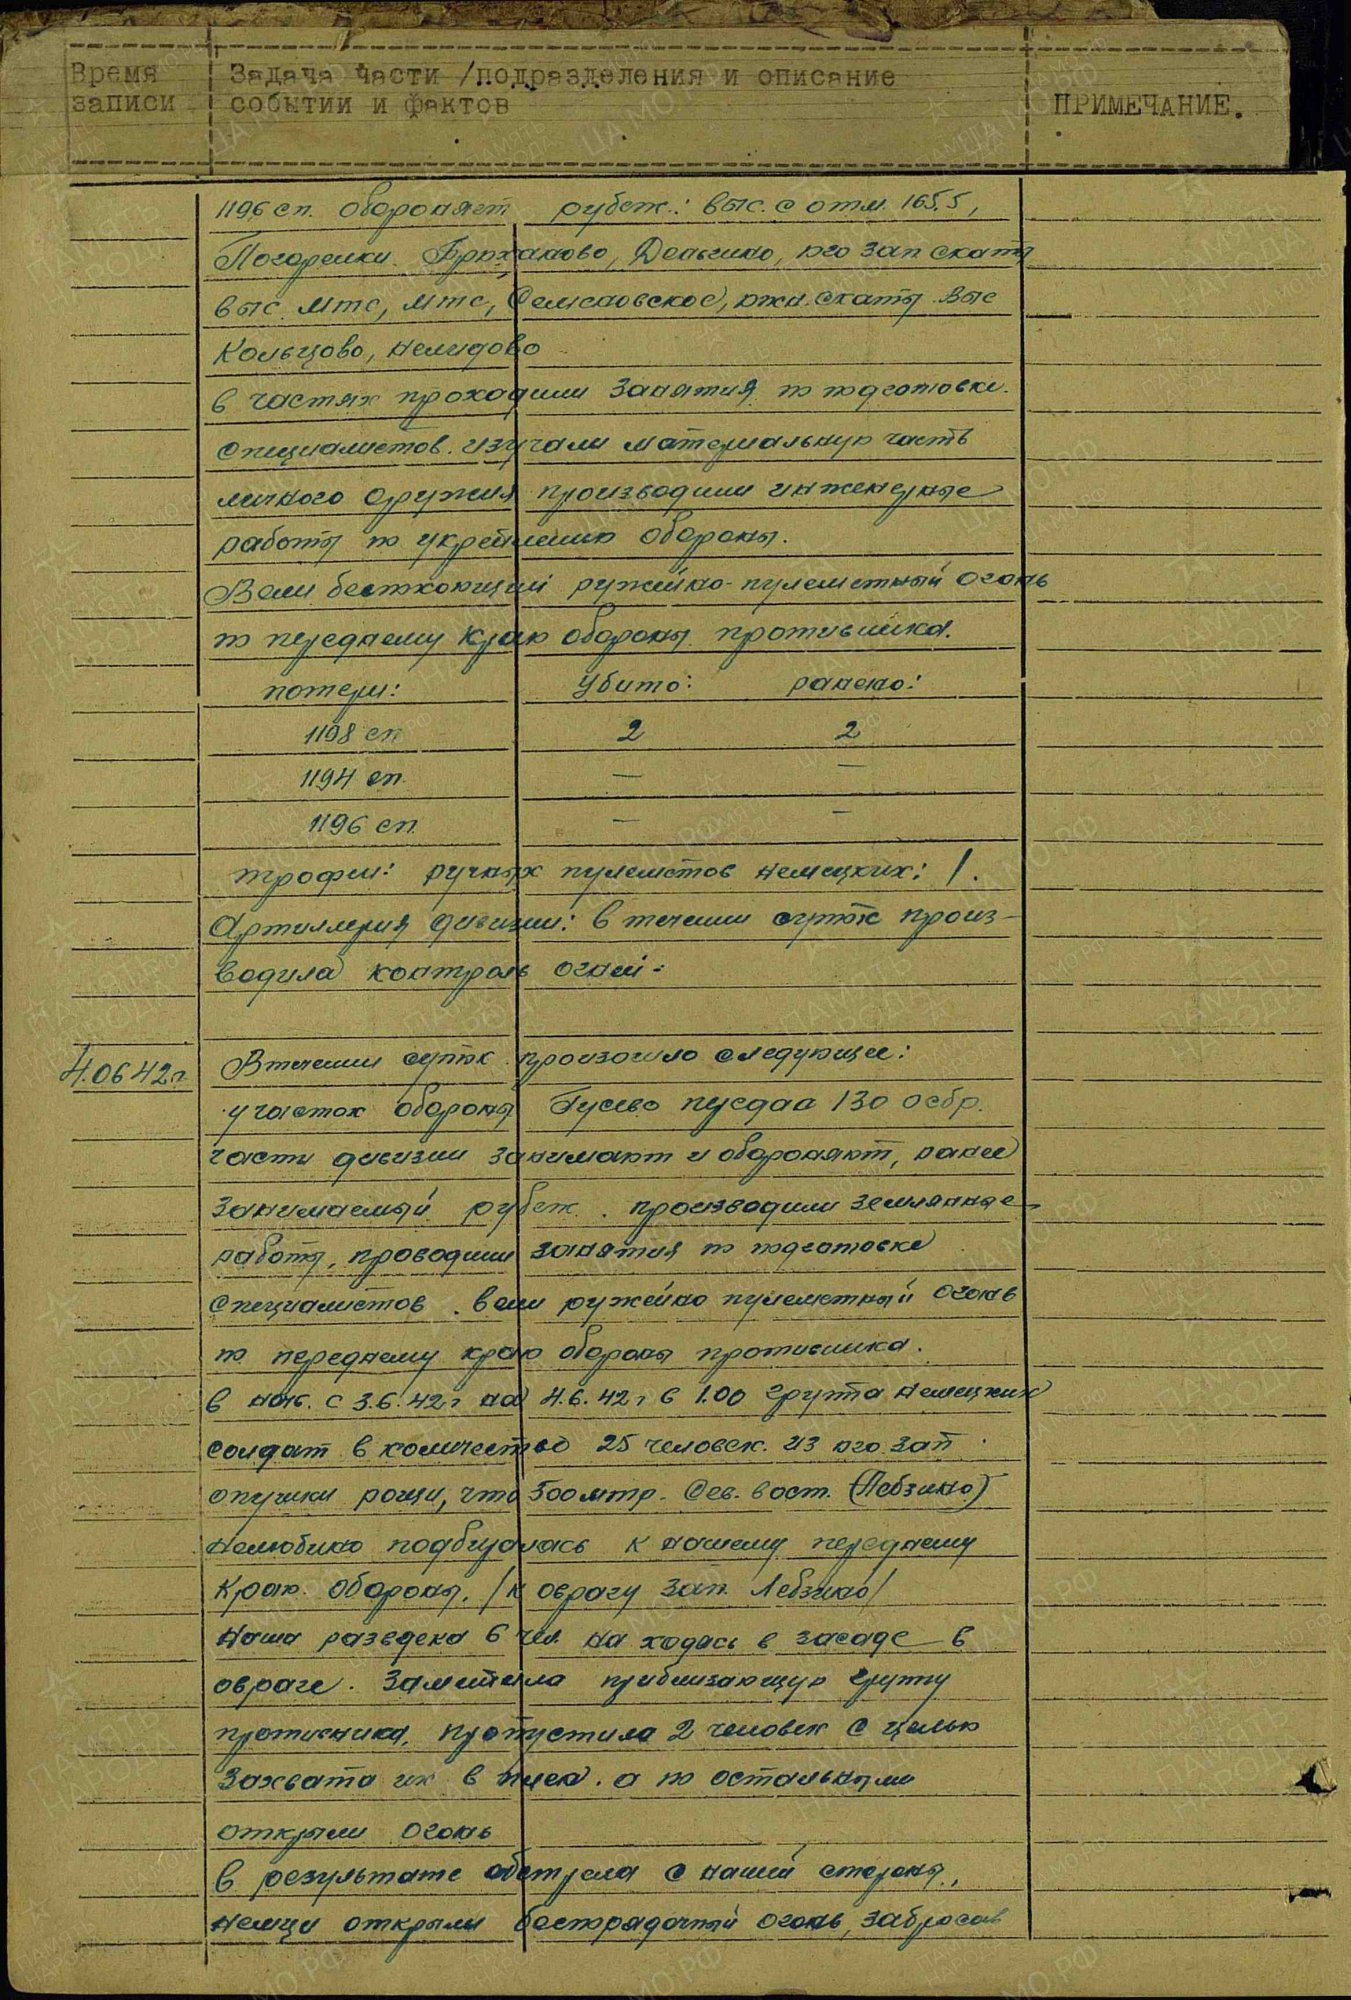 Время записи
Задача части /подразделения и описание
событии и фактов
ПРИМЕЧАНИЕ.
1196 сп. обороняет рубеж: выс. с отм. 165,5,
Погорелки, Брюханово, Деньгино, юго зап скаты
выс. МТС, МТС, южн. скаты выс
Кольцово, Нелидово
в частях проходили занятия по подготовке
специалистов. изучали материальную часть
личного оружия производили инженерные
работы по укреплению обороны.
Вели беспокоющий ружейно-пулеметный огонь
по переднему краю обороны противника.
потери: убито: ранено:
1198 сп 2 2
1194 сп. — —
1196 сп. — —
трофеи: ручных пулеметов немецких: 1.
Артиллерия дивизии: в течении суток произ-
водила контроль огней.
4.06 42г.
В течении суток произошло следующее:
участок обороны Гусево 130 осбр.
части дивизии занимают и обороняют, ранее
занимаемый рубеж. производили землянные
работы, проводили занятия по подготовке
специалистов. вели ружейно пулеметный огонь
по переднему краю обороны противника.
в ночь с 3.6.42г на 4.6.42г в 1.00 группа немецких
солдат в количество 25 человек. из юго зап
опушки рощи, что 500 мтр. сев. вост. (Лебзино)
Нелюбино подбиралась к нашему переднему
краю обороны. /к оврагу зап. Лебзино/
Наша разведка 6 чел. на ходясь в засаде в
овраге. заметила приближающую группу
противника, пропустила 2 человек с целью
захвата их в плен. а по остальными
открыли огонь
в результате обстрела с нашей стороны,
немцы открыли беспорядочный огонь, забросав